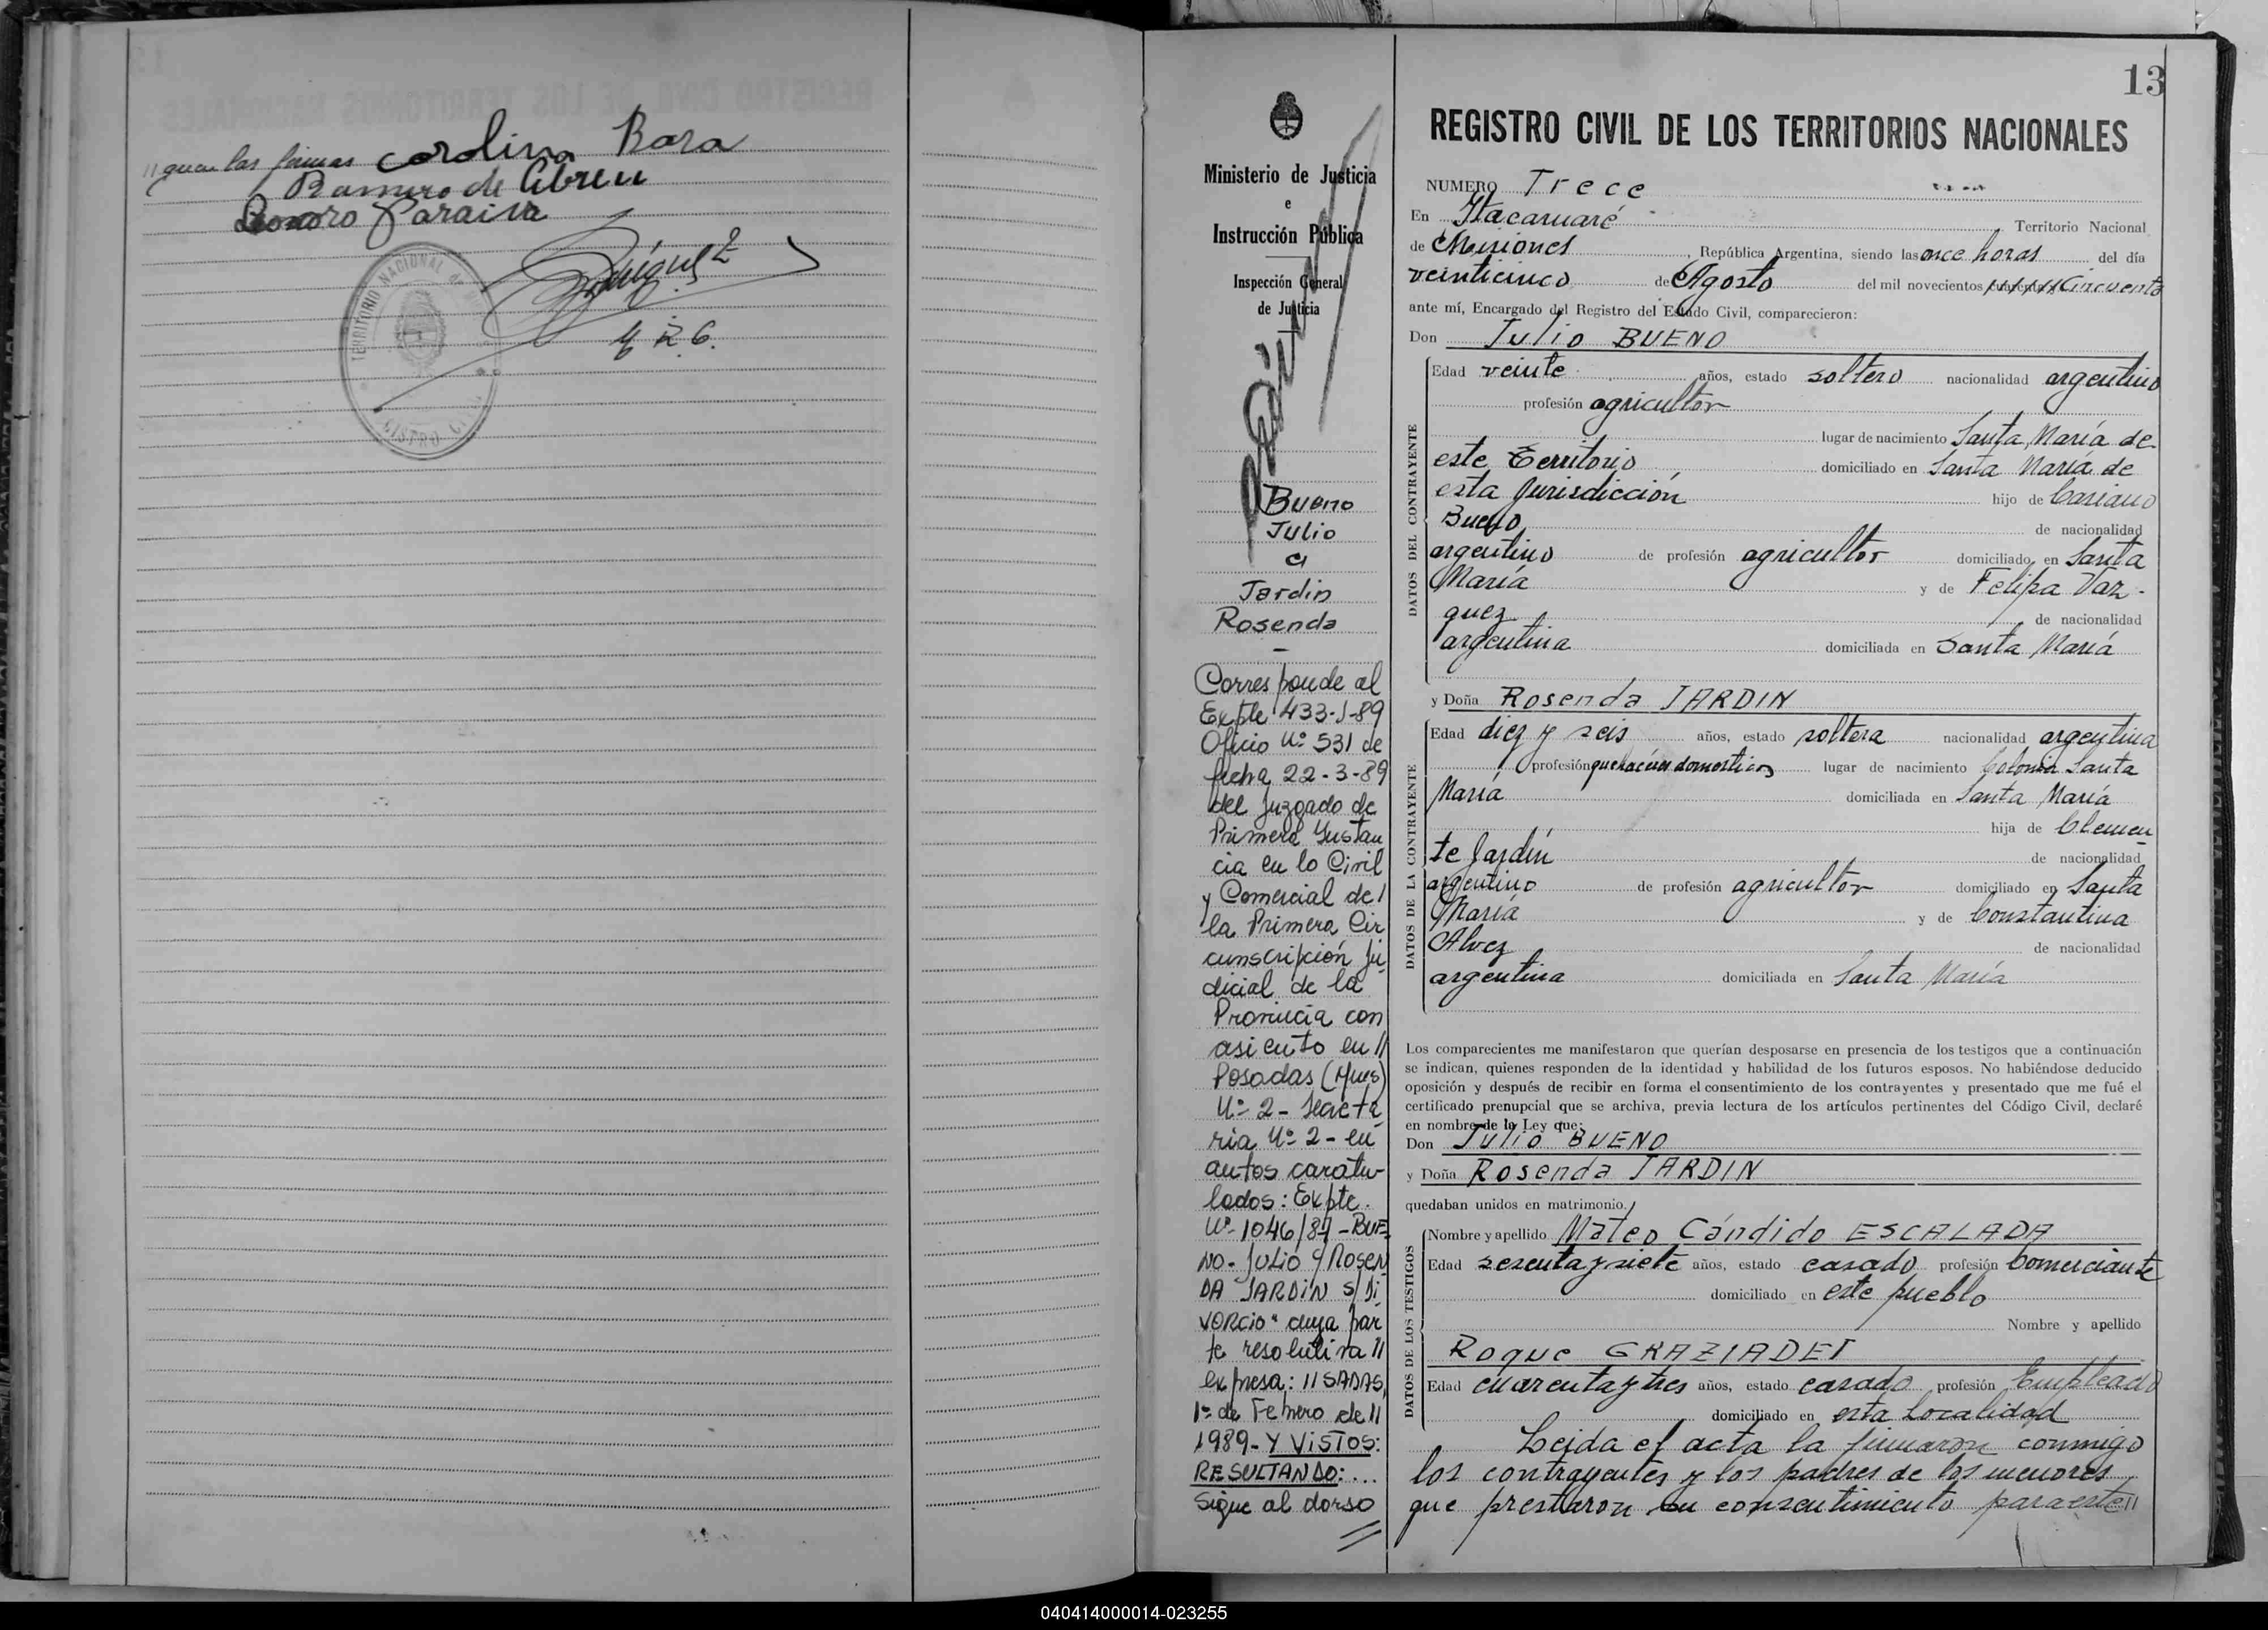 //guen las firmas Carolina Rara
Ramiro de Abreu
Leonoro Paraiva
TERRITORIO NACIONAL de
E. R. C.
Ministerio de Justicia
e
Instrucción Pública
Inspección General
de Justicia
Bueno
Julio
a
Jardin
Rosenda
-
Corresponde al
Expte 433-J-89
Oficio Nº 531 de
fecha 22-3-89
del Juzgado de
Primera Instan
cia en lo Civil
y Comercial de/
la Primera Cir
cunscripción Ju
dicial de la
Provincia con
asiento en //
Posadas (Mnes)
Nº 2 - Secreta
ria Nº 2 - en
autos caratu-
lados: Expte.
Nº 1046/87 - BUE
NO - JULIO C/ ROSEN
DA JARDIN S/ DI
VORCIO" cuya par
te resolutiva //
expresa: // SADAS,
1º de Febrero de //
1989 - Y VISTOS:
RESULTANDO: ...
Sigue al dorso
13
REGISTRO CIVIL DE LOS TERRITORIOS NACIONALES
NUMERO Trece
En Itacaruaré Territorio Nacional
de Misiones, República Argentina, siendo las once horas del día
veinticinco de Agosto del mil novecientos cincuenta
ante mí, Encargado del Registro del Estado Civil, comparecieron:
Don Julio BUENO
DATOS DEL CONTRAYENTE
Edad veinte años, estado soltero nacionalidad argentino
profesión agricultor
lugar de nacimiento Santa María de
este Territorio domiciliado en Santa María de
esta Jurisdicción hijo de Casiano
Bueno de nacionalidad
argentino de profesión agricultor domiciliado en Santa
María y de Felipa Vaz-
quez de nacionalidad
argentina domiciliada en Santa María
y Doña Rosenda JARDIN
DATOS DE LA CONTRAYENTE
Edad diez y seis años, estado soltera nacionalidad argentina
profesión quehaceres domesticos lugar de nacimiento Colonia Santa
María domiciliada en Santa María
hija de Clemen
te Jardín de nacionalidad
argentino de profesión agricultor domiciliado en Santa
María y de Constantina
Alvez de nacionalidad
argentina domiciliada en Santa María
Los comparecientes me manifestaron que querían desposarse en presencia de los testigos que a continuación
se indican, quienes responden de la identidad y habilidad de los futuros esposos. No habiéndose deducido
oposición y después de recibir en forma el consentimiento de los contrayentes y presentado que me fué el
certificado prenupcial que se archiva, previa lectura de los artículos pertinentes del Código Civil, declaré
en nombre de la Ley que:
Don Julio BUENO
y Doña Rosenda JARDIN
quedaban unidos en matrimonio.
DATOS DE LOS TESTIGOS
Nombre y apellido Mateo Cándido ESCALADA
Edad sesenta y siete años, estado casado profesión Comerciante
domiciliado en este pueblo
Nombre y apellido
Roque GRAZIADEI
Edad cuarenta y tres años, estado casado profesión Empleado
domiciliado en esta Localidad
Leida el acta la firmaron conmigo
los contrayentes y los padres de los menores
que prestaron su consentimiento para este //
040414000014-023255